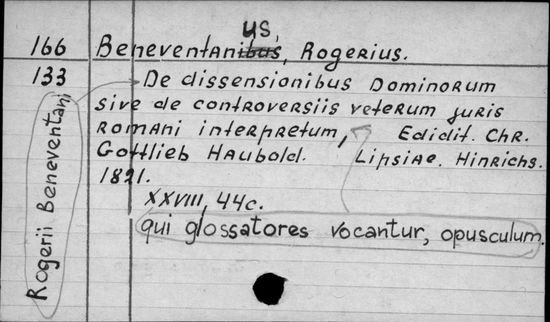 us,
166 Beneventanibus, Rogerius.
133 De dissensionibus Dominorum
sive de controversiis veterum juris
Romani interpretum, Edidit. Chr.
Gottlieb Haubold. Lipsiae. Hinrichs.
1821.
XXVIII, 44c.
qui glossatores vocantur, opusculum.
Rogerii Beneventani